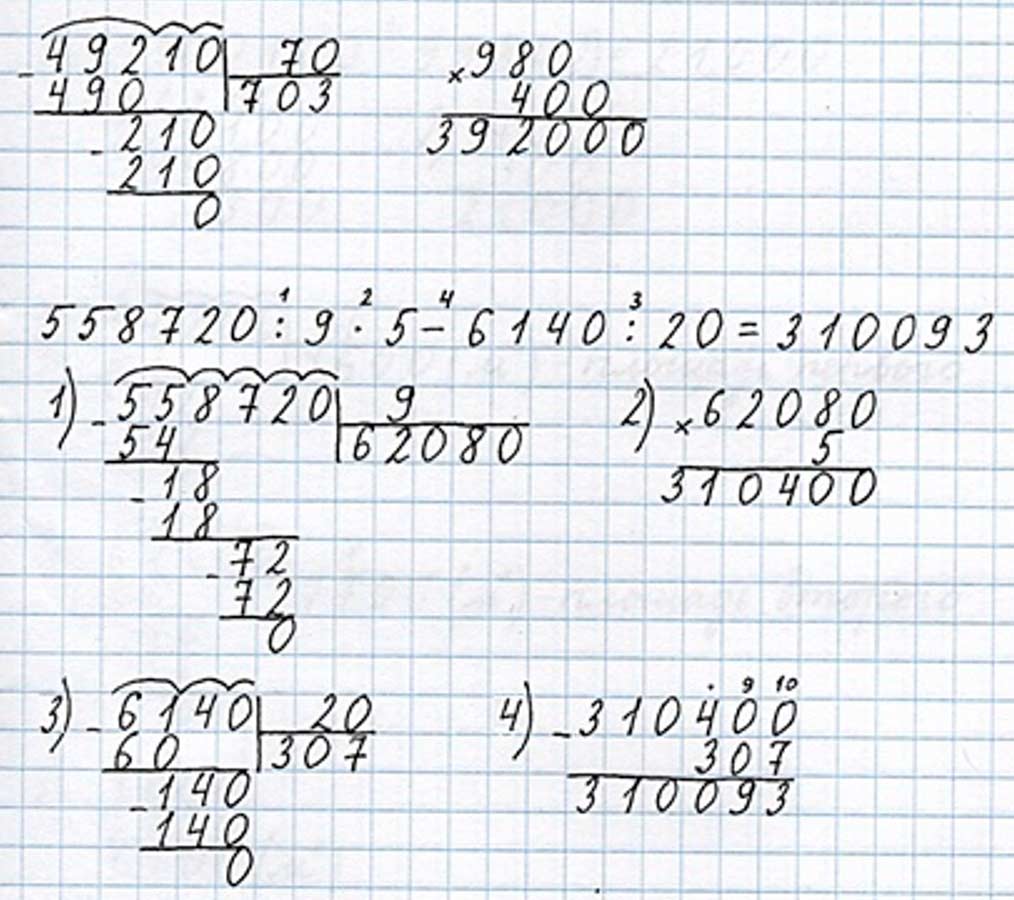 49210 | 70
- 490 | 703
- 210
210
0
× 980
400
392000
1 2 4 3
558720 : 9 · 5 - 6140 : 20 = 310093
1) - 558720 | 9
54 | 62080
- 18
18
- 72
72
0
2) × 62080
5
310400
3) - 6140 | 20
60 | 307
- 140
140
0
. 9 10
4) - 310400
307
310093